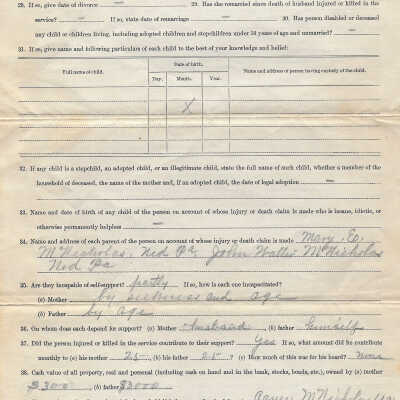 28. If so, give date of divorce — 29. Has she remarried since death of husband injured or killed in the
service? — If so, state date of remarriage — 30. Has person disabled or deceased
any child or children living, including adopted children and stepchildren under 18 years of age and unmarried? —
31. If so, give name and following particulars of each child to the best of your knowledge and belief:
Full name of child.
Date of birth.
Name and address of person having custody of the child.
Day. Month. Year.
X
32. If any child is a stepchild, an adopted child, or an illegitimate child, state the full name of such child, whether a member of the
household of deceased, the name of the mother and, if an adopted child, the date of legal adoption —
33. Name and date of birth of any child of the person on account of whose injury or death claim is made who is insane, idiotic, or
otherwise permanently helpless —
34. Name and address of each parent of the person on account of whose injury or death claim is made Mary E.
McNicholas, Ned Pa John Walter McNicholas
Ned Pa
35. Are they incapable of self-support? partly If so, how is each one incapacitated?
(a) Mother by sickness and age
(b) Father by age
36. On whom does each depend for support? (a) Mother husband (b) father himself
37. Did the person injured or killed in the service contribute to their support? Yes If so, what amount did he contribute
monthly to (a) his mother 25 (b) his father 25? (c) How much of this was for his board? None
38. Cash value of all property, real and personal (including cash on hand and in the bank, stocks, bonds, etc.), owned by (a) mother
$300 (b) father $3000
McNicholas